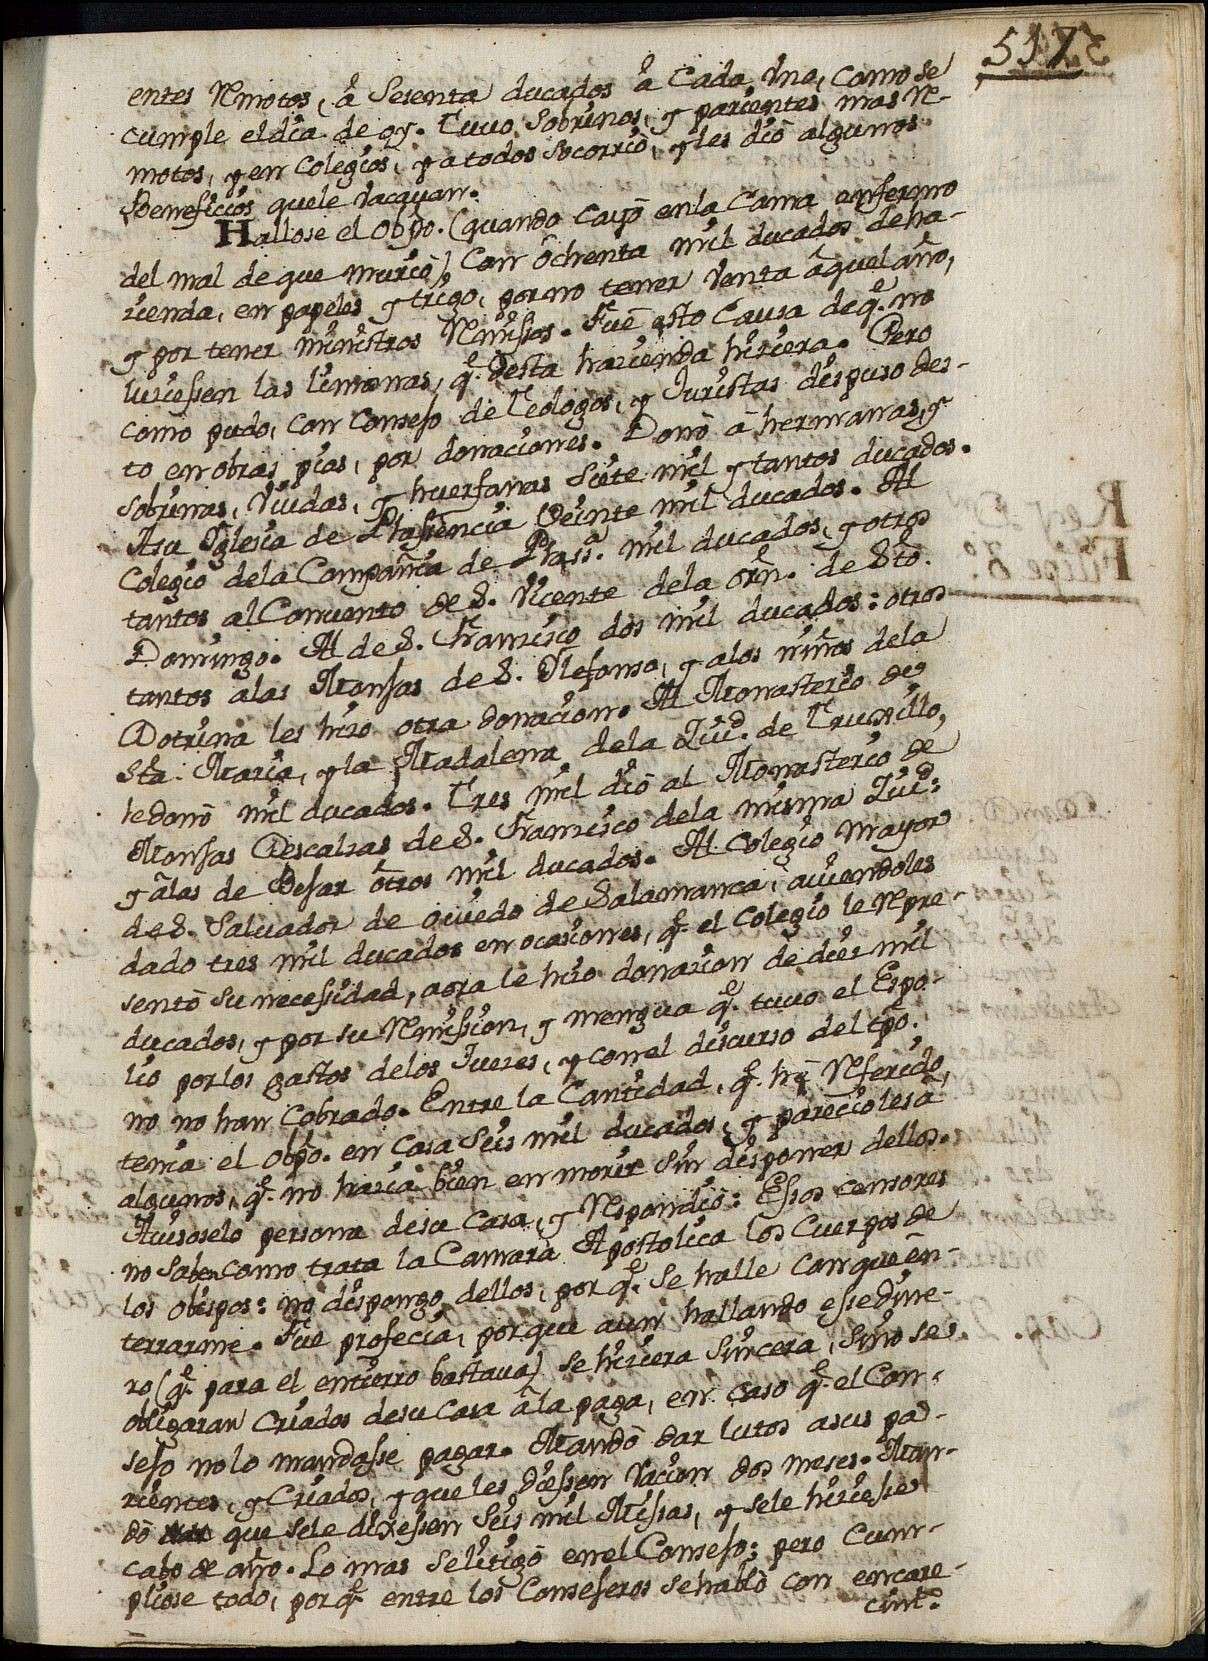 517
entes Remotos, â Sesenta ducados â Cada Vna, Como se
cumple el dia de oy. Tuuo Sobrinos, y parientes mas Re-
motos, y en Colegios, y a todos Socorrió, y les dió algunos
Beneficios quele Vacauan.
Hallose el Obpō. (quando Cayó en la Cama enfermo
del mal de que murió) Con Ôchenta mil ducados deha-
zienda, en papeles y trigo, por no tener Venta âquel año,
y por tener ministros Remissos. Fuê esto Causa de q̄. no
luziessen las limosnas, q̄. desta hazienda hiziera. Pero
como pudo, Con Consejo de Teologos, y Iuristas dispuso des-
to en obras pias, por donaciones. Donó â hermanas, y
sobrinas, Viudas, y huerfanas Siete mil y tantos ducados.
Asu Iglesia de Plasencia Veinte mil ducados. Al
Colegio dela Compañia de Plassª. mil ducados, y otros
tantos al Conuento de S. Vicente dela orñ. de Stō.
Domingo. Al de S. Francisco dos mil ducados: otros
tantos alas Monjas de S. Ylefonso, y alos niños dela
Dotrina les hizo otra donacion. Al Monasterio de
Stā. Maria, y la Madalena dela Ziud. de Truxillo,
le donó mil ducados. Tres mil dió al Monasterio de
Monjas Descalsas de S. Francisco dela misma Ziud:
y âlas de Bejar ôtros mil ducados. Al Colegio Mayor
de S. Saluador de ouiedo de Salamanca, auiendoles
dado tres mil ducados en ocasiones, q̄. el Colegio le Repre-
sentó su necesidad, aora le hizo donacion de diez mil
ducados, y por su Remission, y mengua q̄. tuuo el Espo-
lio por los gastos delos Iuezes, y con el discurso del tpō.
no no han Cobrado. Entre la Cantidad, q̄. hê Referido,
tenia el Obpō. en Casa Seis mil ducados, y parecioles â
algunos, q̄. no hazia bien en morir sin disponer dellos.
Auisoselo persona desu Casa, y Respondió: Essos censores
no saben como trata la Camara Apostolica los Cuerpos de
los obispos: no dispongo dellos, por q̄. Se halle Con que ên-
terrarme. Fue profecia, porque aun hallando esse dine-
ro (q̄. para el entierro bastaua) se hiziera sin cera, Sino se
obligaran Criados desu Casa âla paga, en caso q̄. el Con-
sejo no lo mandasse pagar. Mandó dar lutos asus pa-
rientes, y Criados, y que les diessen Racion dos meses. Man-
dó que sele dixessen Seis mil Missas, y sele hiziesse
cabo de año. Lo mas Selitigó en el Consejo; pero Cum-
pliose todo, por q̄. entre los Consejeros Se habló con encare-
cimtº.